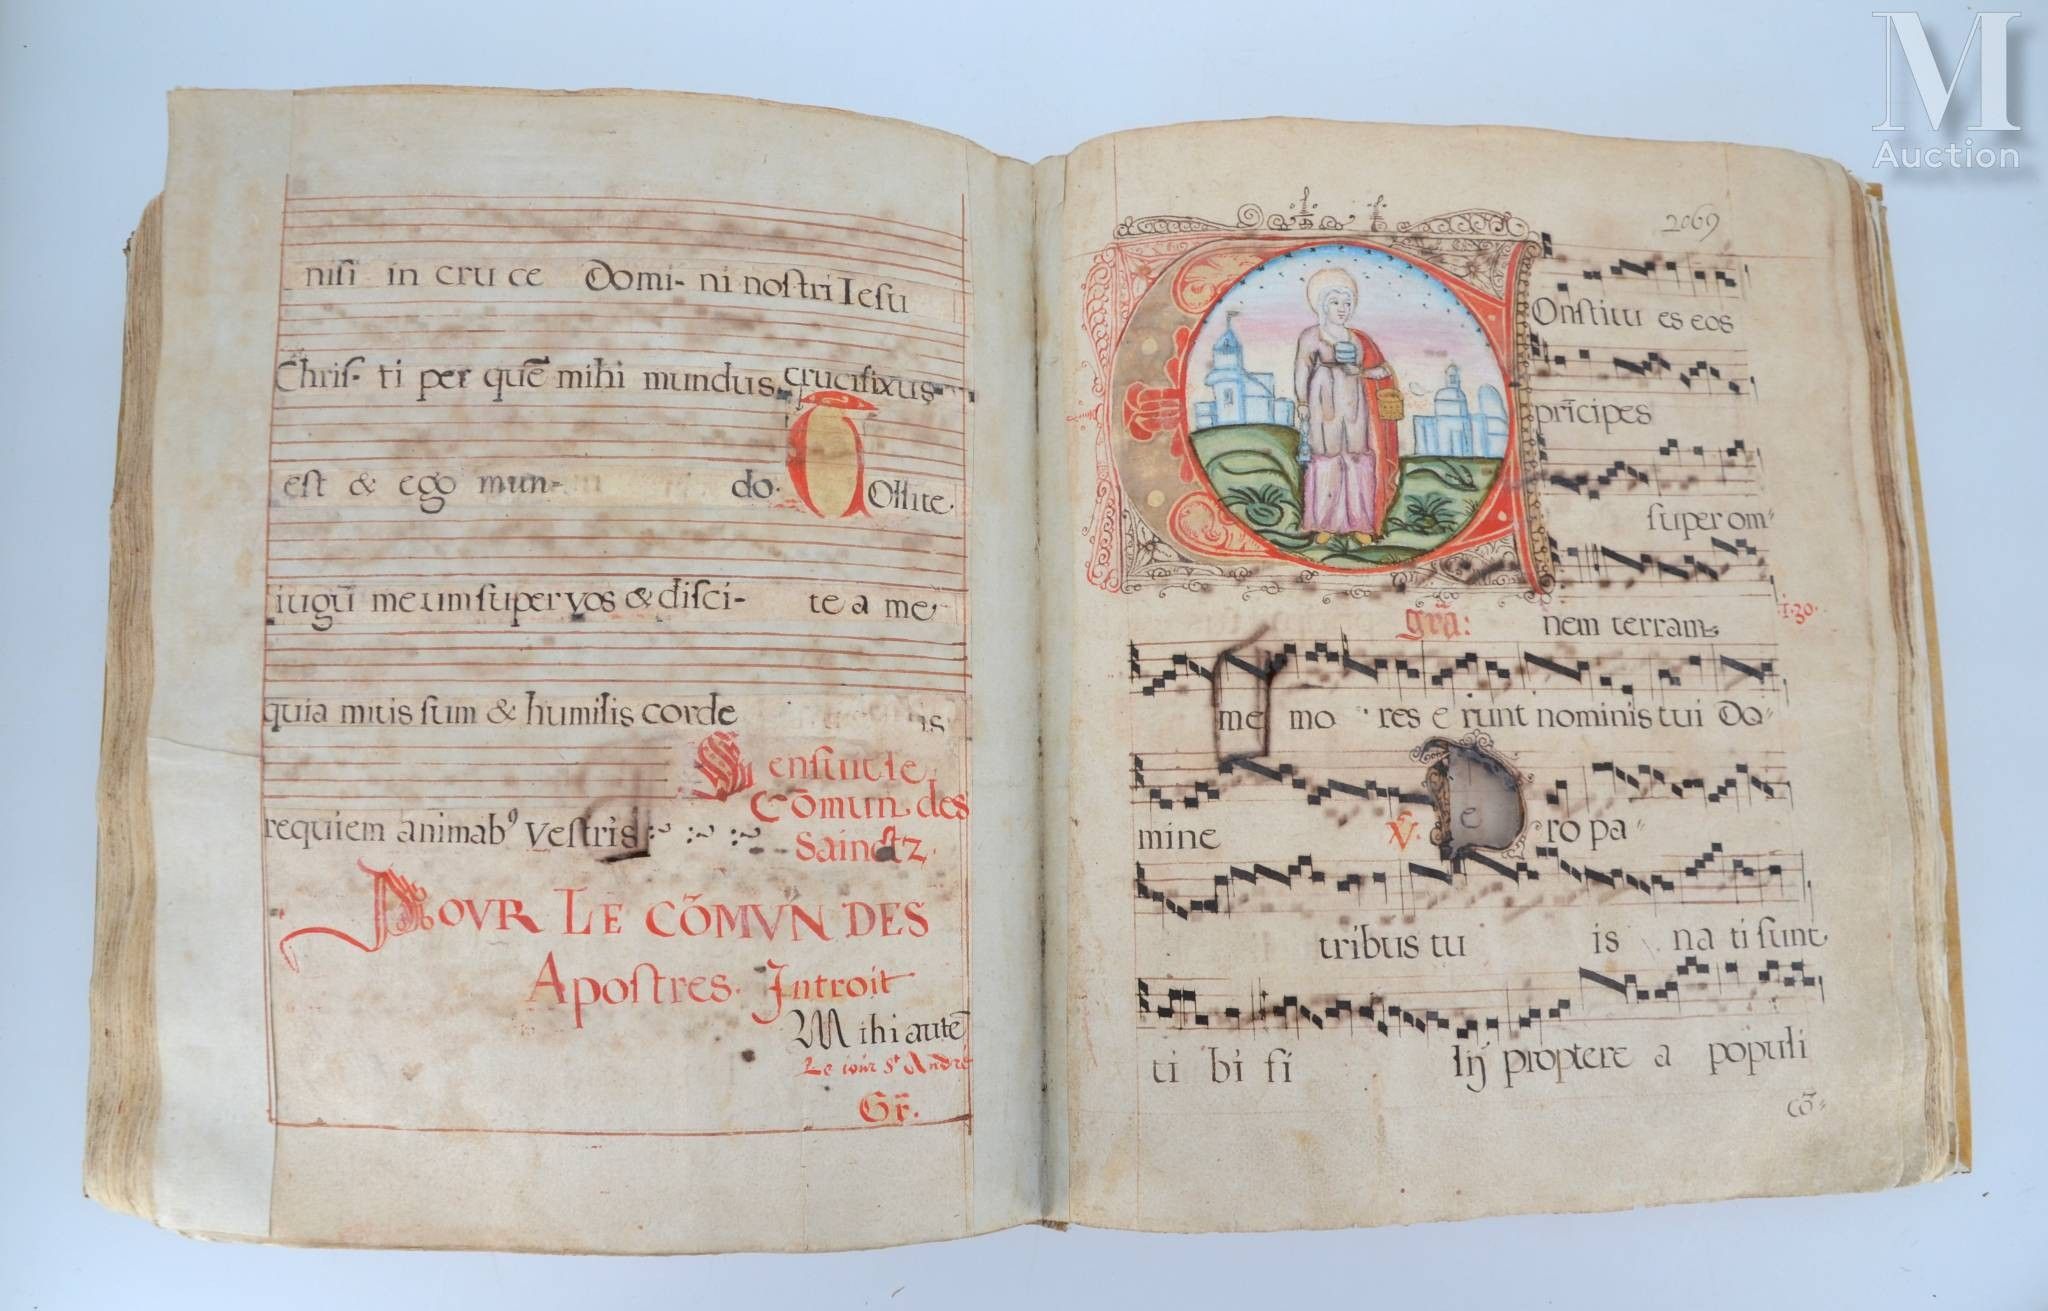 nisi in cru ce Domi- ni nostri Iesu
Chris- ti per quē mihi mundus crucifixus
est & ego mun- do. Tollite
iugū meum super vos & disci- te a me
quia mitis sum & humilis corde is
requiem animab⁹ vestris
Sensuit le
Cōmun des
Sainctz.
POVR LE CŌMVN DES
Apostres. Introit
Mihi autē
Le iour St André
Gr.
2069
Onstitu es eos
prīcipes
super om-
grā: nem terram 1.30.
me mo res e runt nominis tui Do-
mine ℣. P ro pa-
tribus tu is na ti sunt
ti bi fi lij proptere a populi
cō-
M
Auction